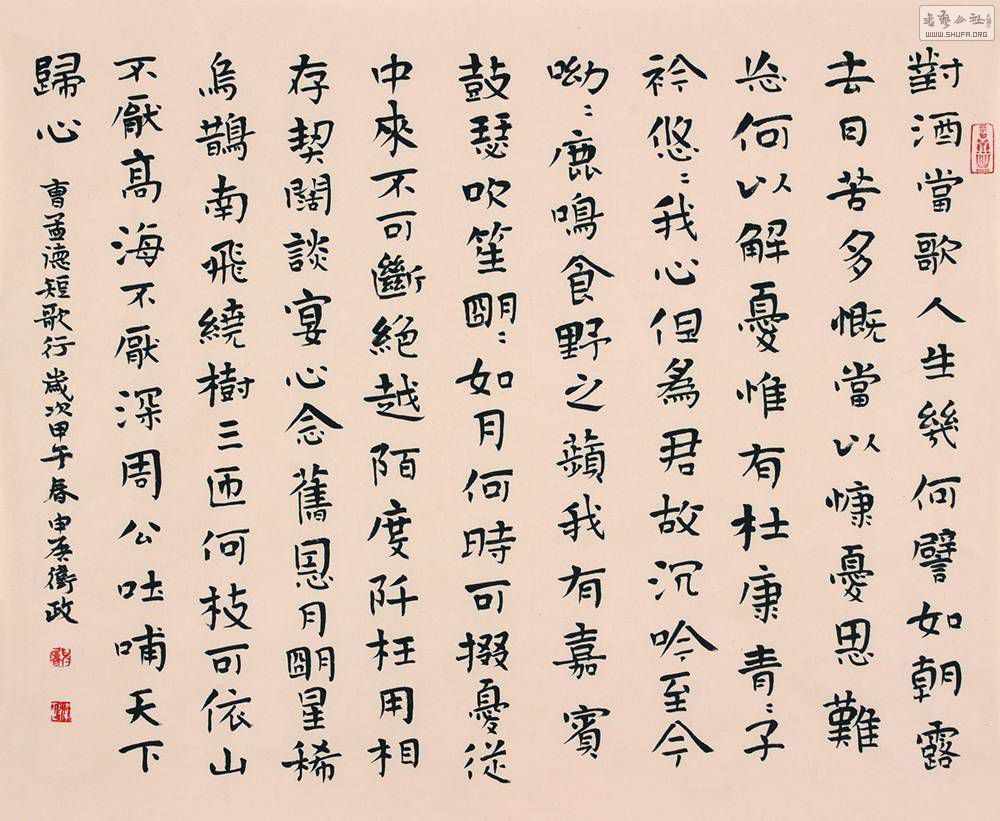 對酒當歌人生幾何譬如朝露
去日苦多慨當以慷憂思難
忘何以解憂惟有杜康青〻子
衿悠〻我心但為君故沉吟至今
呦〻鹿鳴食野之蘋我有嘉賓
鼓瑟吹笙朙〻如月何時可掇憂從
中來不可斷絕越陌度阡枉用相
存契闊談宴心念舊恩月朙星稀
烏鵲南飛繞樹三匝何枝可依山
不厭高海不厭深周公吐哺天下
歸心
曹孟德短歌行歲次甲午春申衛政
書藝公社
WWW.SHUFA.ORG